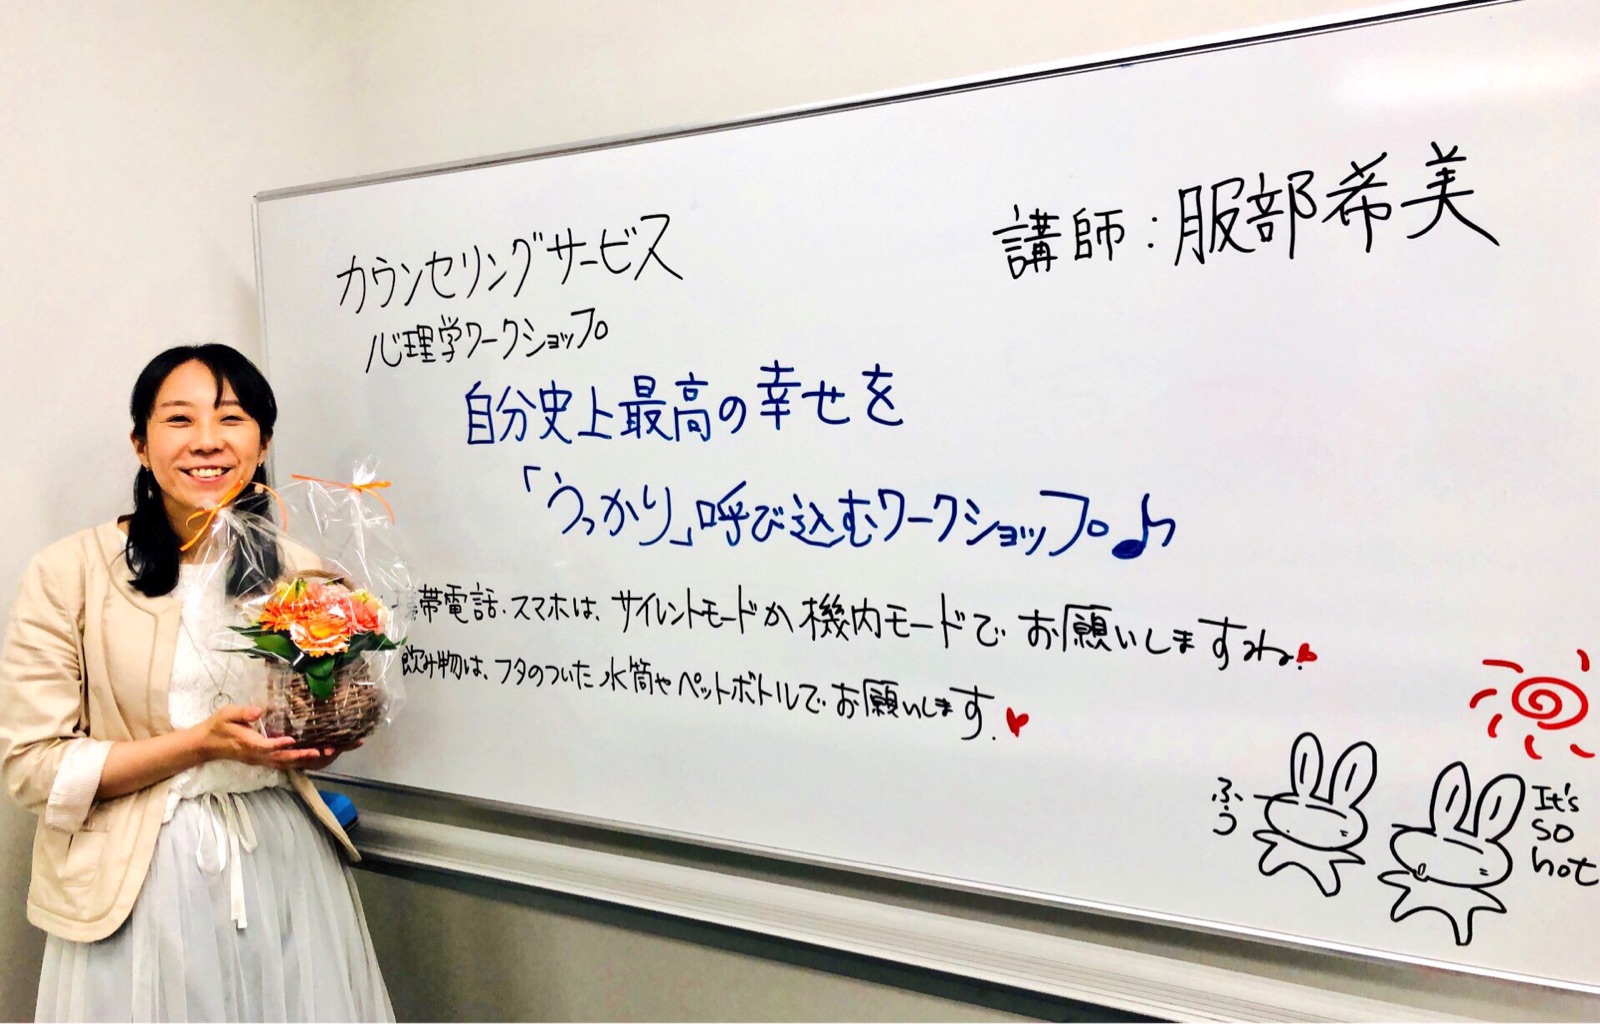 カウンセリングサービス
講師：服部希美
心理学ワークショップ
自分史上最高の幸せを
「うっかり」呼び込むワークショップ♪
携帯電話・スマホは、サイレントモードか機内モードでお願いしますね
飲み物は、フタのついた水筒やペットボトルでお願いします
ふぅ
It's
so
hot